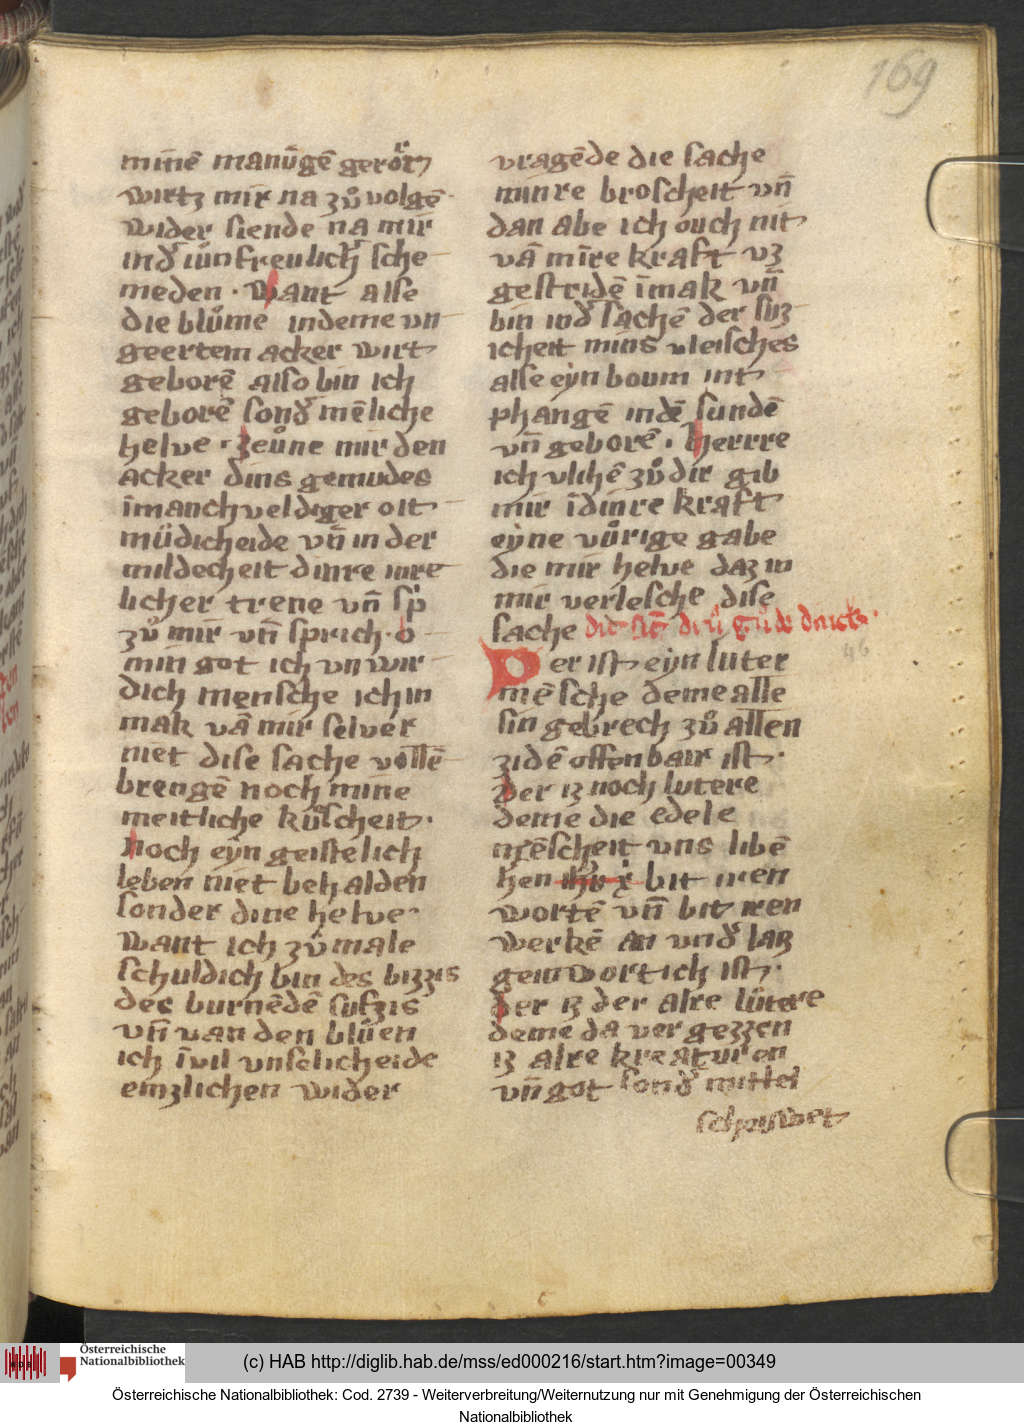 169
mīnē manūgē
wirtz mir na zů volgē
wider siende na mir
ind' iūnfreulich sche
meden · want alse
die blůme indeme vn
geertem acker wirt
geborē also bin ich
geborē sond' mēliche
helve · zeůne mir den
acker dins gemudes
īmanchveldiger oit
müdicheide vn̄ in der
mildecheit dinre inre
licher trene vn̄ sp̄
zů mir vn̄ sprich · o
min got ich vnwir
dich mensche ich in
mak vā mir selver
niet dise sache vollē
brengē noch mine
meitliche kůscheit ·
Noch eyn geistelich
leben niet behalden
sonder dine helve
want ich zůmale
schuldich bin des bizzis
des burnēdē sufzis
vn̄ van den blůen
ich īvil vnselicheide
einzlichen wider
vragēde die sache
minre broscheit vn̄
dan abe ich ouch nit
vā mīre kraft vz
gestridē īmak vn̄
bin ind' sachē der suz
icheit mins vleisches
alse eyn boum int
phangē indē sundē
vn̄ geborē · herrre
ich vlihē zů dir gib
mir īdinre kraft
eyne vůrige gabe
die mir helve daz in
mir verlesche dise
sache
46
Der ist eyn luter
mēsche deme alle
sin gebrech zů allen
zidē offenbair ist ·
Der iz noch lutere
deme die edele
mēscheit vns libē
hen bit iren
wortē vn̄ bit iren
werkē an vnd'laz
gein wortich ist ·
der iz der alre lůtere
deme da vergezzen
iz alre kreaturen
vn̄ got sond' mittel
schouwet
Österreichische
Nationalbibliothek
(c) HAB http://diglib.hab.de/mss/ed000216/start.htm?image=00349
Österreichische Nationalbibliothek: Cod. 2739 - Weiterverbreitung/Weiternutzung nur mit Genehmigung der Österreichischen
Nationalbibliothek